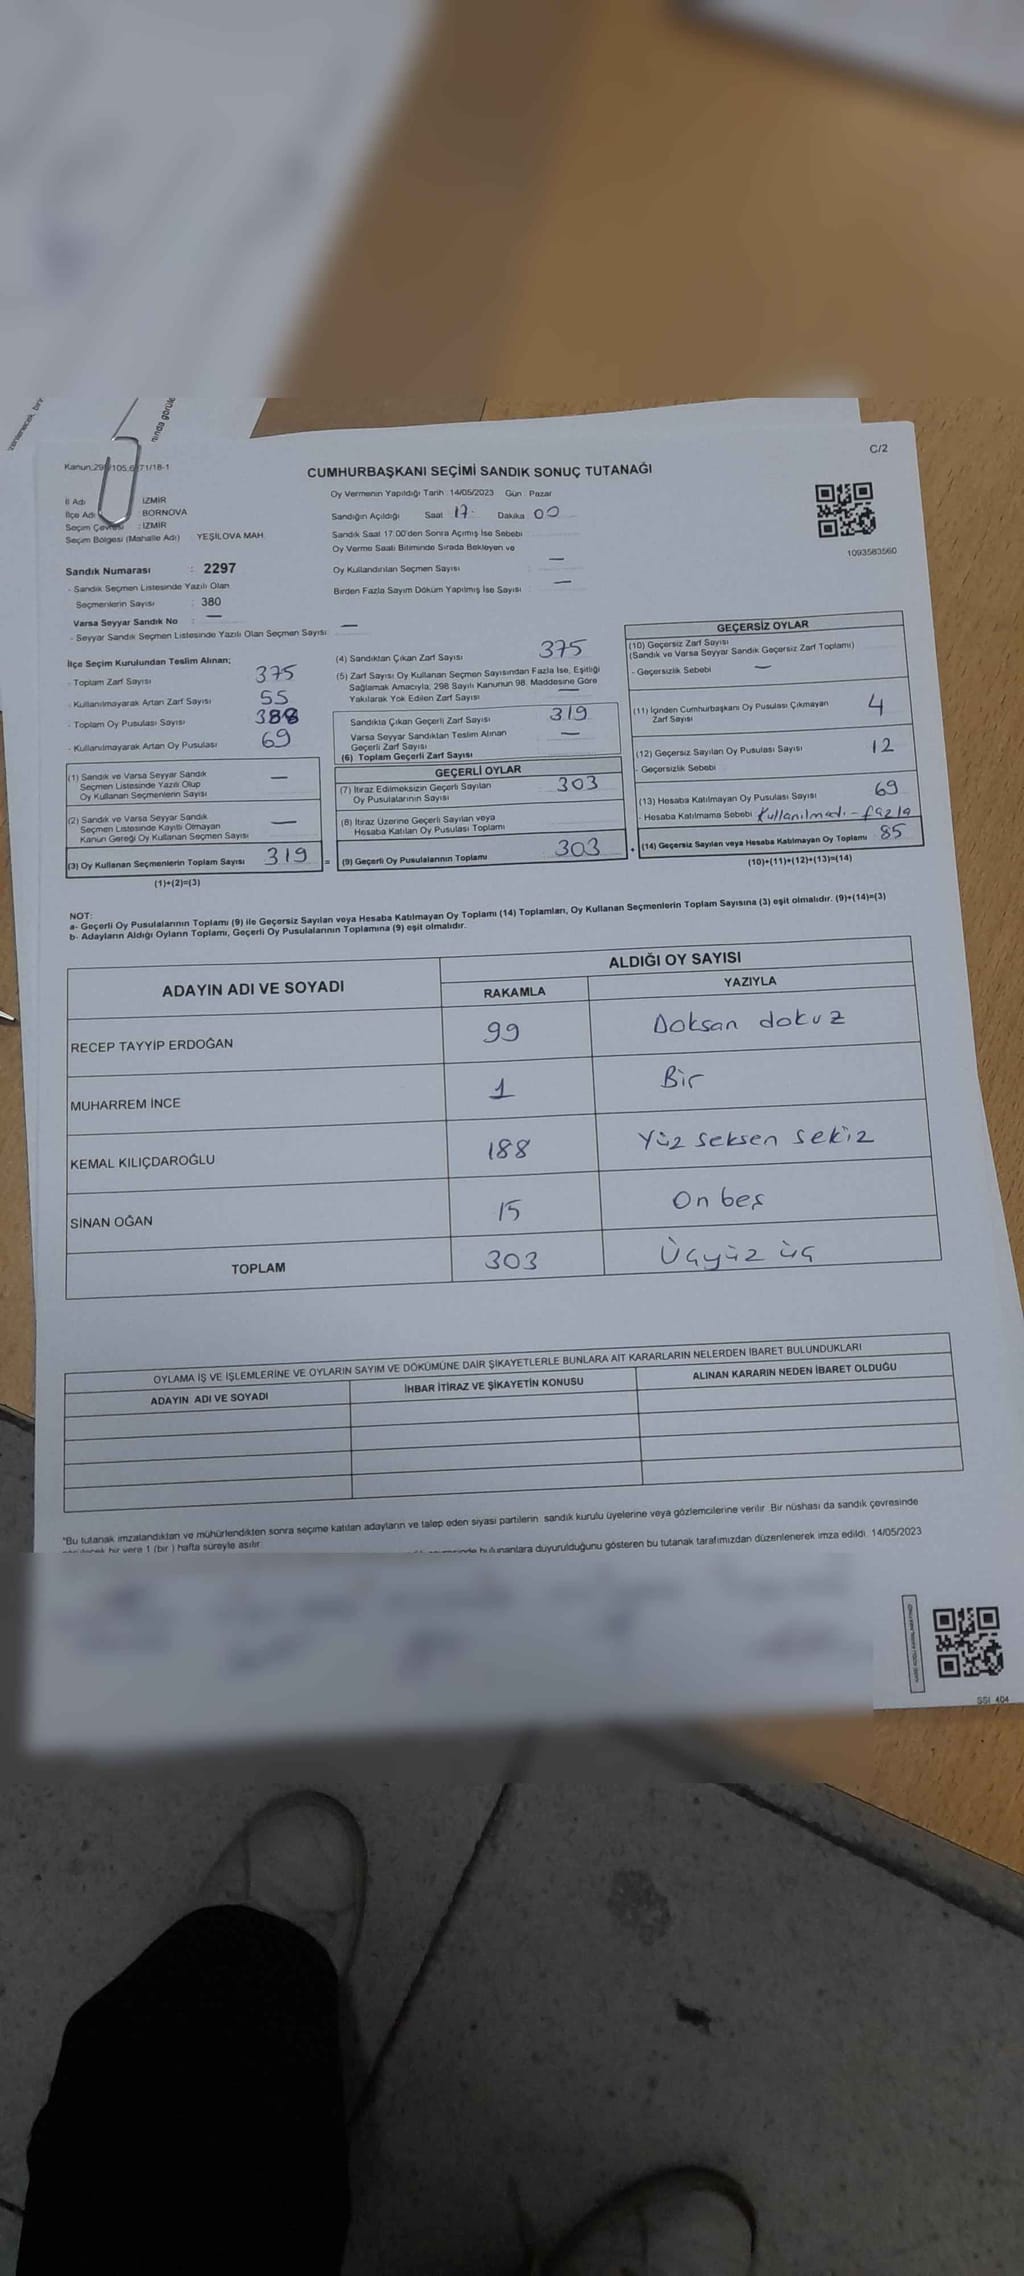 C/2
Kanun:29
105,6
71/18-1
CUMHURBAŞKANI SEÇİMİ SANDIK SONUÇ TUTANAĞI
İl Adı İZMİR
İlçe Adı BORNOVA
Seçim Çevresi : İZMİR
Seçim Bölgesi (Mahalle Adı) YEŞİLOVA MAH.
Sandık Numarası : 2297
- Sandık Seçmen Listesinde Yazılı Olan
Seçmenlerin Sayısı : 380
Varsa Seyyar Sandık No : —
- Seyyar Sandık Seçmen Listesinde Yazılı Olan Seçmen Sayısı: —
Oy Vermenin Yapıldığı Tarih :14/05/2023 Gün : Pazar
Sandığın Açıldığı Saat 17: Dakika 00
Sandık Saat 17:00'den Sonra Açımış İse Sebebi
Oy Verme Saati Bitiminde Sırada Bekleyen ve
Oy Kullandırılan Seçmen Sayısı : —
Birden Fazla Sayım Döküm Yapılmış İse Sayısı : —
1093583560
İlçe Seçim Kurulundan Teslim Alınan;
- Toplam Zarf Sayısı 375
- Kullanılmayarak Artan Zarf Sayısı 55
- Toplam Oy Pusulası Sayısı 388
- Kullanılmayarak Artan Oy Pusulası 69
(1) Sandık ve Varsa Seyyar Sandık
Seçmen Listesinde Yazılı Olup
Oy Kullanan Seçmenlerin Sayısı —
(2) Sandık ve Varsa Seyyar Sandık
Seçmen Listesinde Kayıtlı Olmayan
Kanun Gereği Oy Kullanan Seçmen Sayısı —
(3) Oy Kullanan Seçmenlerin Toplam Sayısı 319 =
(1)+(2)=(3)
(4) Sandıktan Çıkan Zarf Sayısı 375
(5) Zarf Sayısı Oy Kullanan Seçmen Sayısından Fazla İse, Eşitliği
Sağlamak Amacıyla; 298 Sayılı Kanunun 98. Maddesine Göre
Yakılarak Yok Edilen Zarf Sayısı —
Sandıkta Çıkan Geçerli Zarf Sayısı 319
Varsa Seyyar Sandıktan Teslim Alınan
Geçerli Zarf Sayısı —
(6) Toplam Geçerli Zarf Sayısı
GEÇERLİ OYLAR
(7) İtiraz Edilmeksizin Geçerli Sayılan
Oy Pusulalarının Sayısı 303
(8) İtiraz Üzerine Geçerli Sayılan veya
Hesaba Katılan Oy Pusulası Toplamı
(9) Geçerli Oy Pusulalarının Toplamı 303 +
GEÇERSİZ OYLAR
(10) Geçersiz Zarf Sayısı
(Sandık ve Varsa Seyyar Sandık Geçersiz Zarf Toplamı)
- Geçersizlik Sebebi —
(11) İçinden Cumhurbaşkanı Oy Pusulası Çıkmayan
Zarf Sayısı 4
(12) Geçersiz Sayılan Oy Pusulası Sayısı 12
- Geçersizlik Sebebi
(13) Hesaba Katılmayan Oy Pusulası Sayısı 69
- Hesaba Katılmama Sebebi Kullanılmadı - fazla
(14) Geçersiz Sayılan veya Hesaba Katılmayan Oy Toplamı 85
(10)+(11)+(12)+(13)=(14)
NOT:
a- Geçerli Oy Pusulalarının Toplamı (9) ile Geçersiz Sayılan veya Hesaba Katılmayan Oy Toplamı (14) Toplamları, Oy Kullanan Seçmenlerin Toplam Sayısına (3) eşit olmalıdır. (9)+(14)=(3)
b- Adayların Aldığı Oyların Toplamı, Geçerli Oy Pusulalarının Toplamına (9) eşit olmalıdır.
ADAYIN ADI VE SOYADI ALDIĞI OY SAYISI
RAKAMLA YAZIYLA
RECEP TAYYİP ERDOĞAN 99 Doksan dokuz
MUHARREM İNCE 1 Bir
KEMAL KILIÇDAROĞLU 188 Yüz seksen sekiz
SİNAN OĞAN 15 On beş
TOPLAM 303 Üçyüz üç
OYLAMA İŞ VE İŞLEMLERİNE VE OYLARIN SAYIM VE DÖKÜMÜNE DAİR ŞİKAYETLERLE BUNLARA AİT KARARLARIN NELERDEN İBARET BULUNDUKLARI
ADAYIN ADI VE SOYADI İHBAR İTİRAZ VE ŞİKAYETİN KONUSU ALINAN KARARIN NEDEN İBARET OLDUĞU
*Bu tutanak imzalandıktan ve mühürlendikten sonra seçime katılan adayların ve talep eden siyasi partilerin sandık kurulu üyelerine veya gözlemcilerine verilir. Bir nüshası da sandık çevresinde
bir yere 1 (bir ) hafta süreyle asılır.
bulunanlara duyurulduğunu gösteren bu tutanak tarafımızdan düzenlenerek imza edildi. 14/05/2023
SSI_404